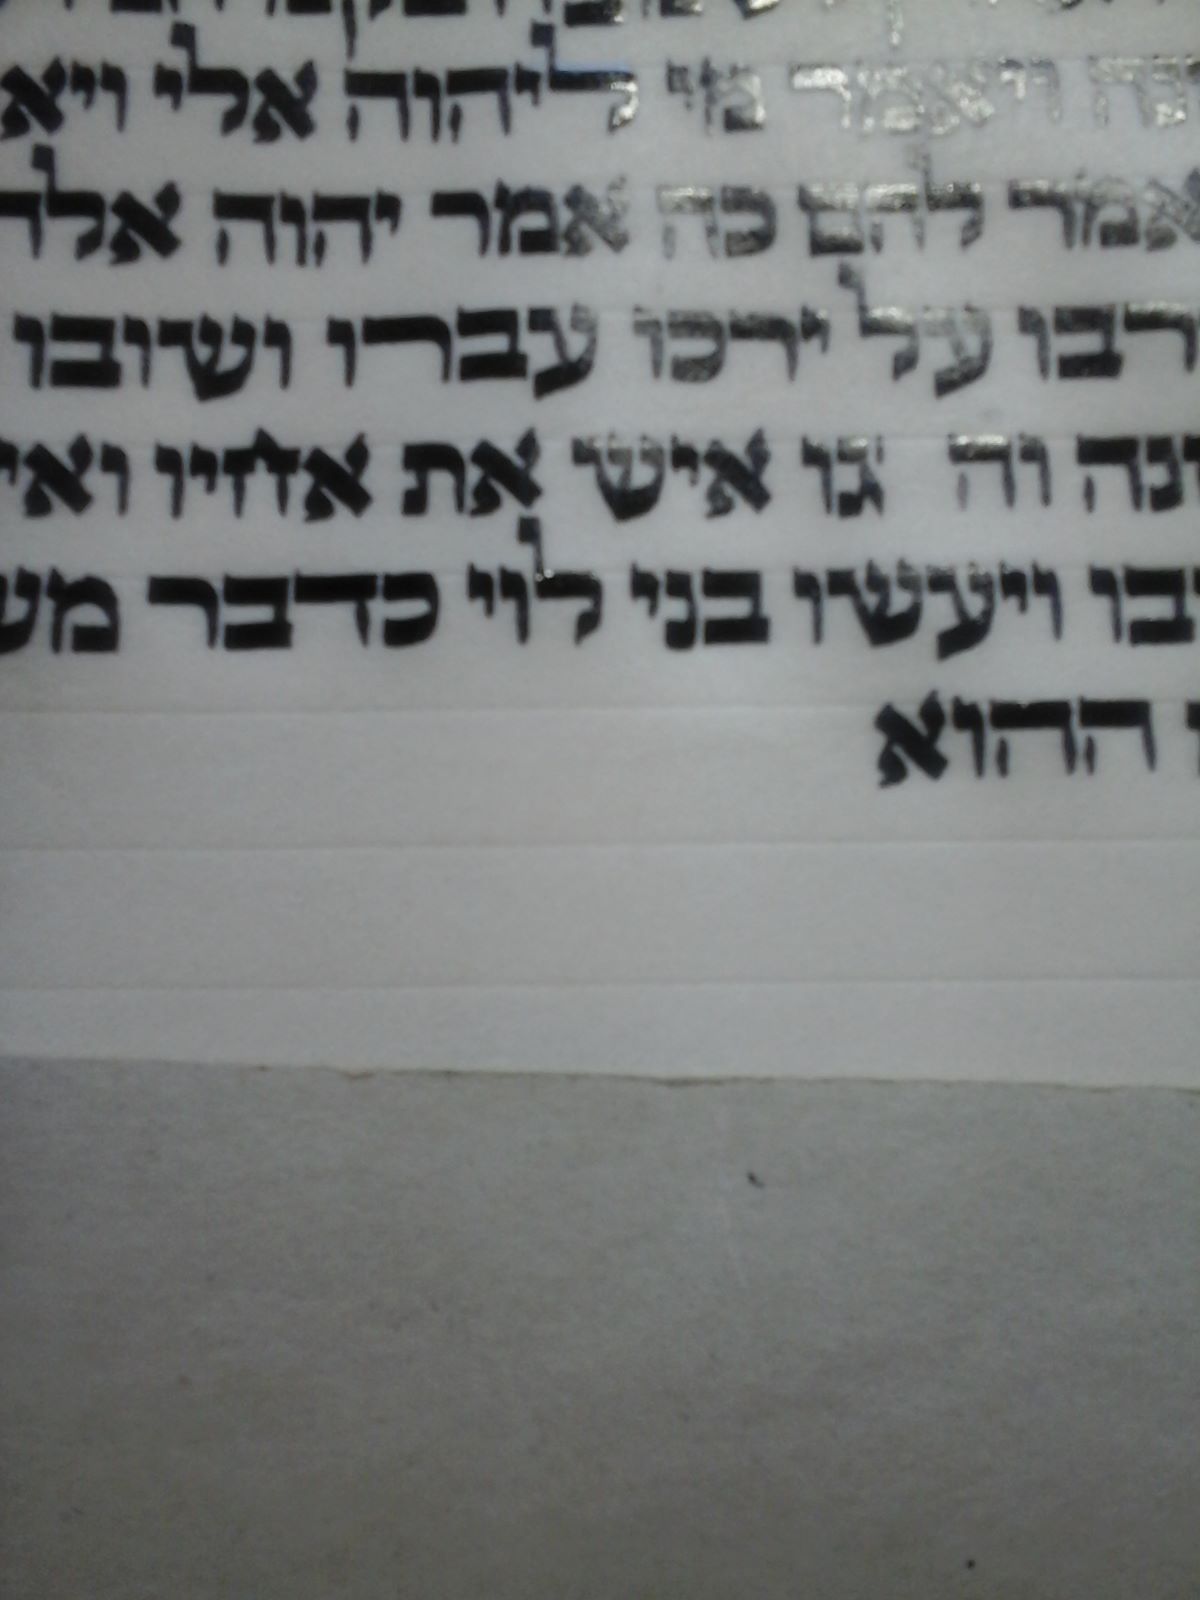 נה ויאמר מי ליהוה אלי ויא
אמר להם כה אמר יהוה אלה
רבו על ירכו עברו ושובו
נה וה גו איש את אחיו ואי
בו ויעשו בני לוי כדבר מש
ההוא